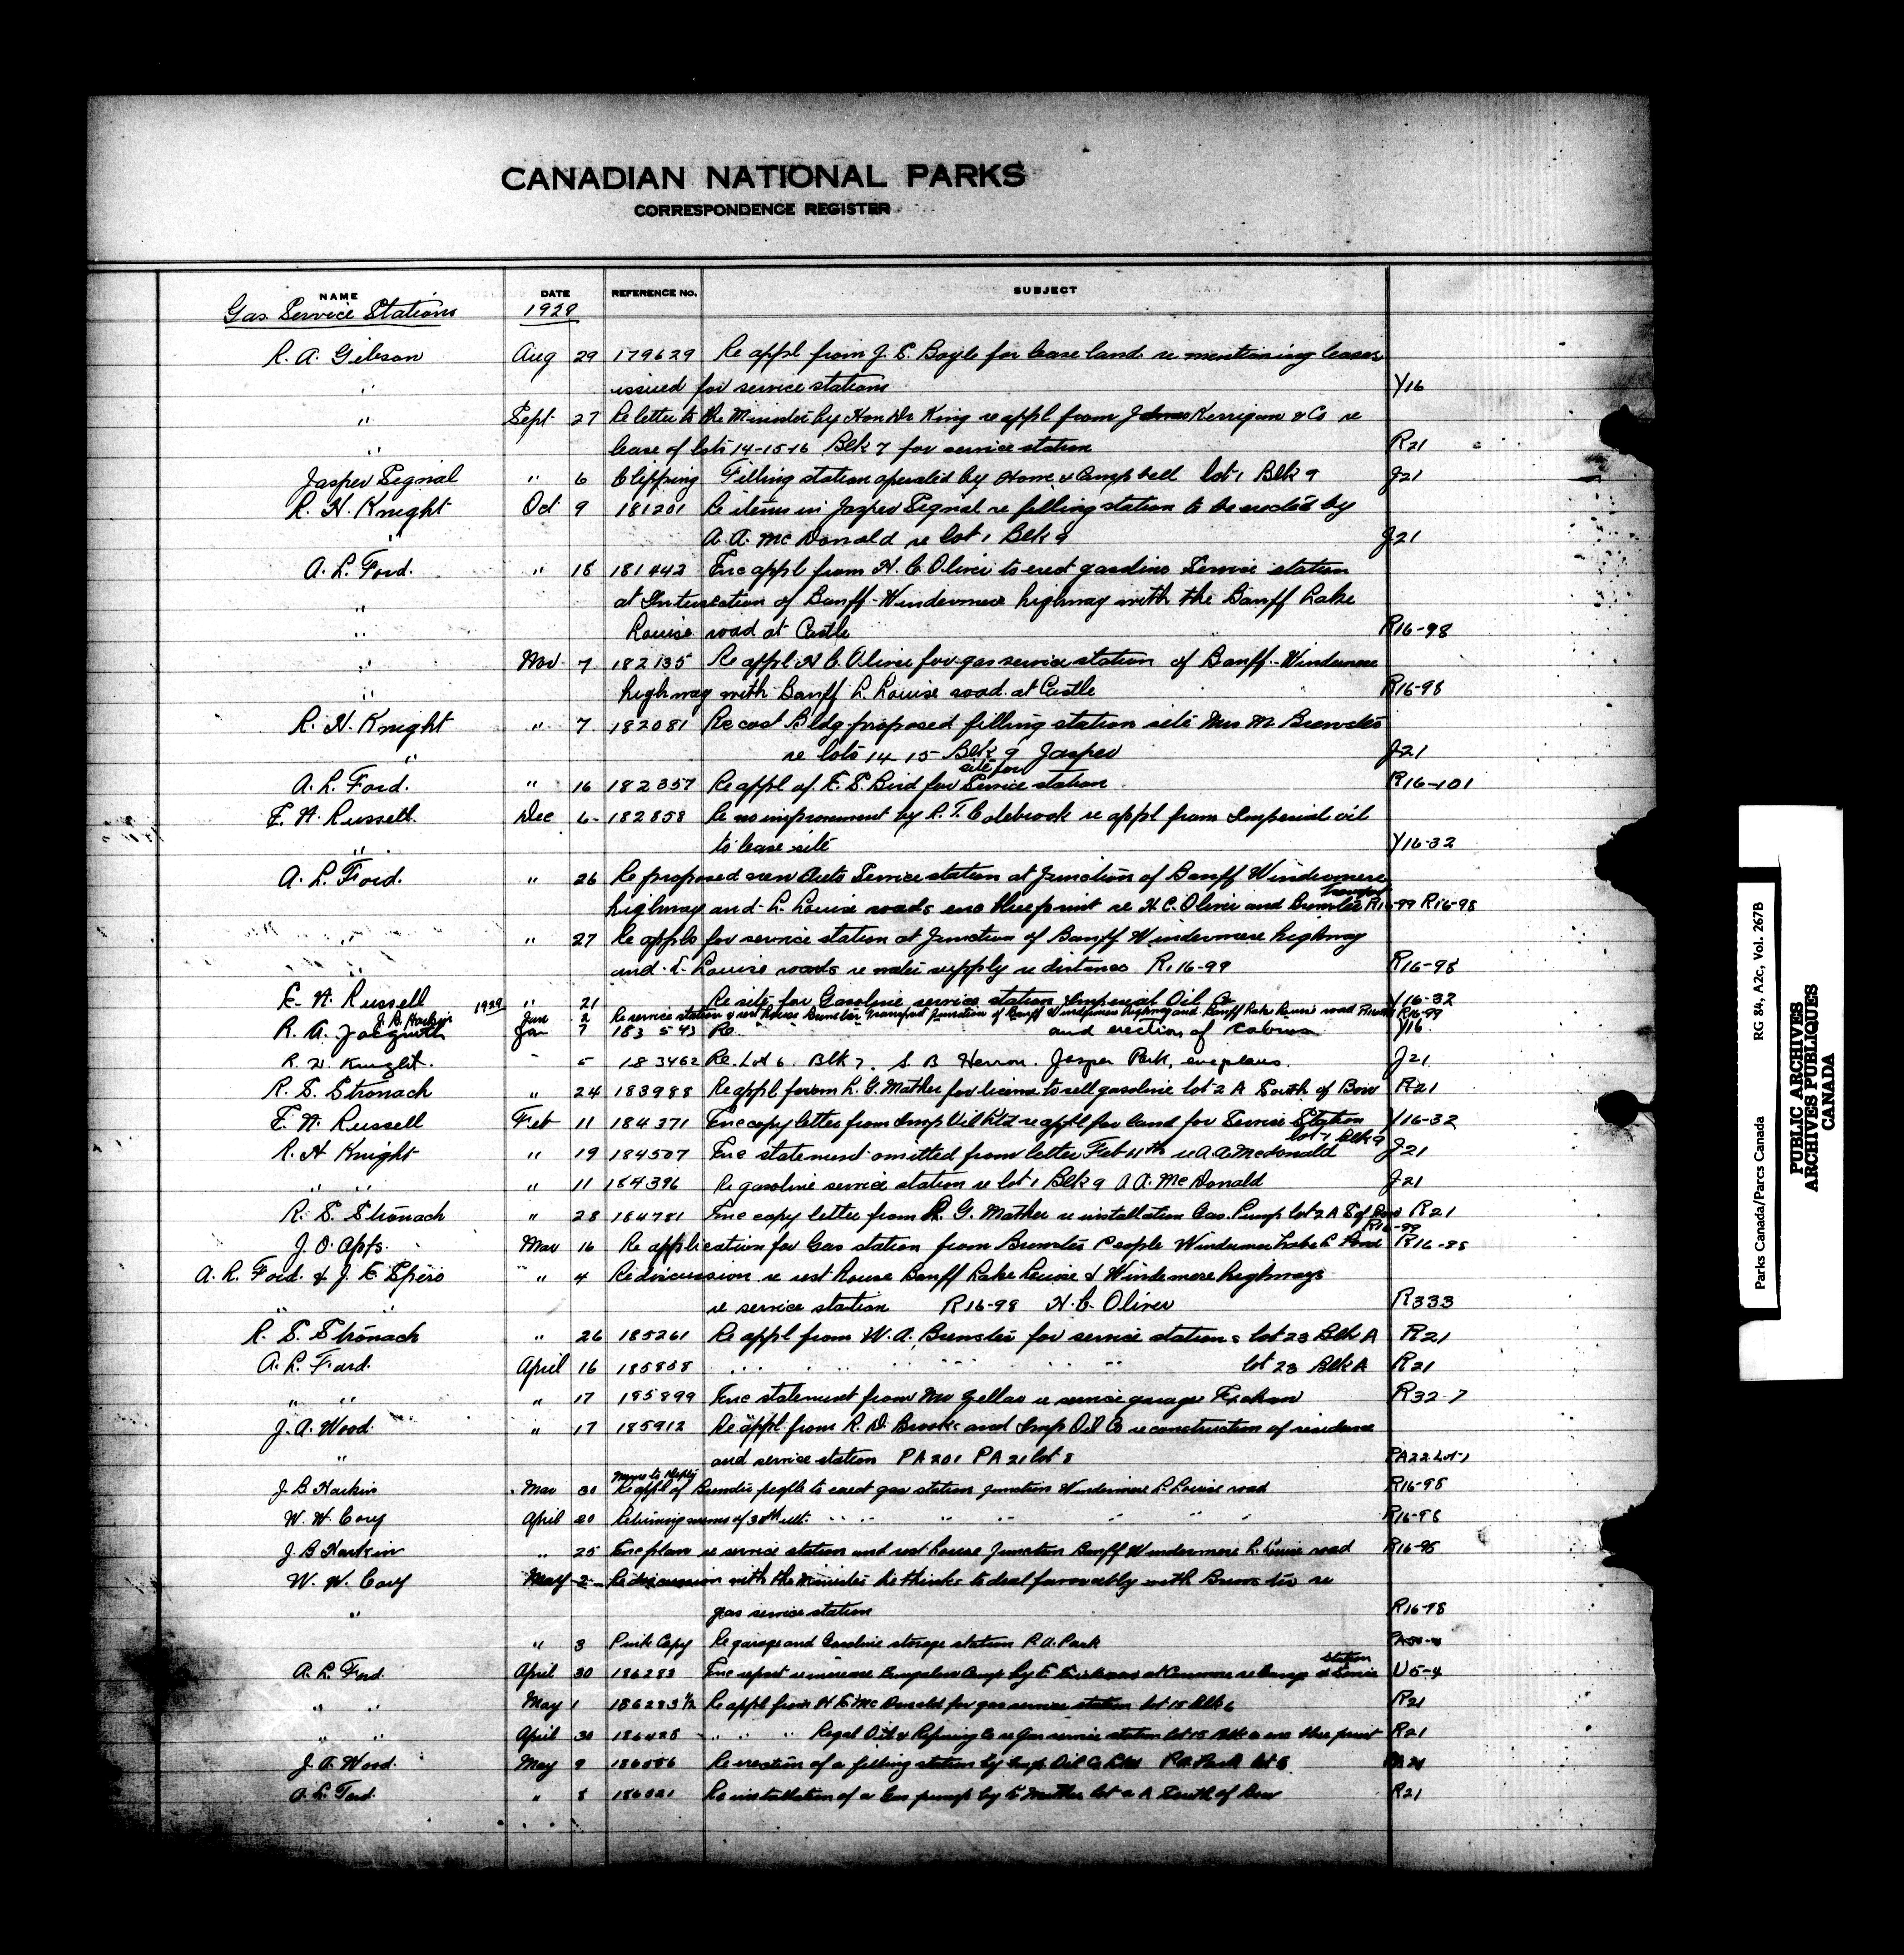 CANADIAN NATIONAL PARKS
CORRESPONDENCE REGISTER
NAME DATE REFERENCE No. SUBJECT
Gas Service Stations 1928
R. A. Gibson Aug 29 179629 Re appl from J. S. Boyle for lease land re mentioning leases
" issued for service stations Y16
" Sept 27 Re letter to the Minister by Hon Dr King re appl from Kerrigan & Co re
" lease of lots 14-15-16 Blk 7 for service station R21
Jasper Signal " 6 Clipping Filling station operated by Horne & Campbell lot 1 Blk 9 J21
R. H. Knight Oct 9 181201 Re items in Jasper Signal re filling station to be erected by
" A. A. McDonald re lot 1 Blk 9 J21
A. L. Ford. " 18 181442 Enc appl from H. C. Oliver to erect gasoline Service station
" at Intersection of Banff-Windermere highway with the Banff Lake
" Louise road at Castle R16-98
" Nov 7 182135 Re appl H C Oliver for gas service station of Banff-Windermere
" highway with Banff L. Louise road at Castle R16-98
R. H. Knight " 7 182081 Re cost Bldg proposed filling station site Mrs M. Brewster
" re lots 14-15 Blk 9 Jasper J21
A. L. Ford. " 16 182357 Re appl of F. S. Bird for site for Service station R16-101
E. N. Russell. Dec 6 182858 Re no improvement by R. T. Colebrook re appl from Imperial oil
" to lease site Y16-32
A. L. Ford. " 26 Re proposed new Auto Service station at Junction of Banff Windermere
highway and L. Louise roads enc blueprint re H. C. Oliver and Brewster Transport R16-99 R16-98
" " 27 Re appls for service station at Junction of Banff Windermere highway
" and L. Louise roads re water supply re distance R.16-99 R16-98
E. N. Russell " 21 Re site for Gasoline service station Imperial Oil Co Y16-32
J. B. Harkin 1929 Jan 2 Re service station & rest house Brewster Transport Junction of Banff Windermere highway and Banff Lake Louise road R16-98 R16-99
R. A. Jan 7 183543 Re. " " " and erection of cabins Y16
R. H. Knight. " 5 183462 Re. Lot 6 Blk 7. S. B Herron. Jasper Park, enc plans. J21
R. S. Stronach " 24 183988 Re appl from L. G. Mather for license to sell gasoline lot 2 A South of Bow R21
E. N. Russell Feb 11 184371 Enc copy letter from Imp Oil Ltd re appl for land for Service Station Y16-32
R. H Knight " 19 184507 Enc statement omitted from letter Feb 11th re A A McDonald lot 1 Blk 9 J21
" " " 11 184396 Re gasoline service station re lot 1 Blk 9 A A. McDonald J21
R. S. Stronach " 28 184781 Enc copy letter from R. G. Mather re installation Gas Pump lot 2 A S of Bow R21
J. O. Apps. Mar 16 Re application for Gas station from Brewster People Windermere Lake L Road R16-99 R16-98
A. L. Ford. & J. E. Spero " 4 Re discussion re rest house Banff Lake Louise & Windermere highways
" " re service station R16-98 H. C. Oliver R333
R. S. Stronach " 26 185261 Re appl from W. A. Brewster for service stations lot 23 Blk A R21
A. L. Ford. April 16 185858 " " " " lot 23 Blk A R21
" " " 17 185899 Enc statement from Mr Zeller re service garage R32-7
J. A. Wood. " 17 185912 Re appl from R. D. Brooks and Imp Oil Co re construction of residence
" and service station PA201 PA21 lot 8 PA22 Lot-1
J B Harkin Mar 30 Memo to Deputy Re appl of Brewster people to erect gas station junction Windermere L. Louise road R16-98
W. W. Cory April 20 Returning memo of 30th ult. " " " " R16-98
J. B Harkin " 25 Enc plans re service station and rest house Junction Banff Windermere L. Louise road R16-98
W. W. Cory May 2 Re discussion with the Minister he thinks to deal favourably with Brewster re
" gas service station R16-98
" 3 Pink Copy Re garage and Gasoline storage station P. A. Park
A. L. Ford. April 30 186283 Enc report re increase Bungalow Camp by E. at Canmore re Camp & Service station U5-4
" " May 1 186283½ Re appl from H E McDonald for gas service station lot 15 Blk 6 R21
" " April 30 186428 " " " Regal Oil & Refining Co re Gas service station lot 15 Blk 6 enc blue print R21
J. A. Wood. May 9 Re erection of a filling station by Imp Oil Co Ltd P.A. Park lot 8
A. L. Ford. " 8 Re installation of a Gas pump by Mather lot 2 A South of Bow R21
Parks Canada/Parcs Canada RG 84, A2c, Vol. 267B
PUBLIC ARCHIVES
ARCHIVES PUBLIQUES
CANADA